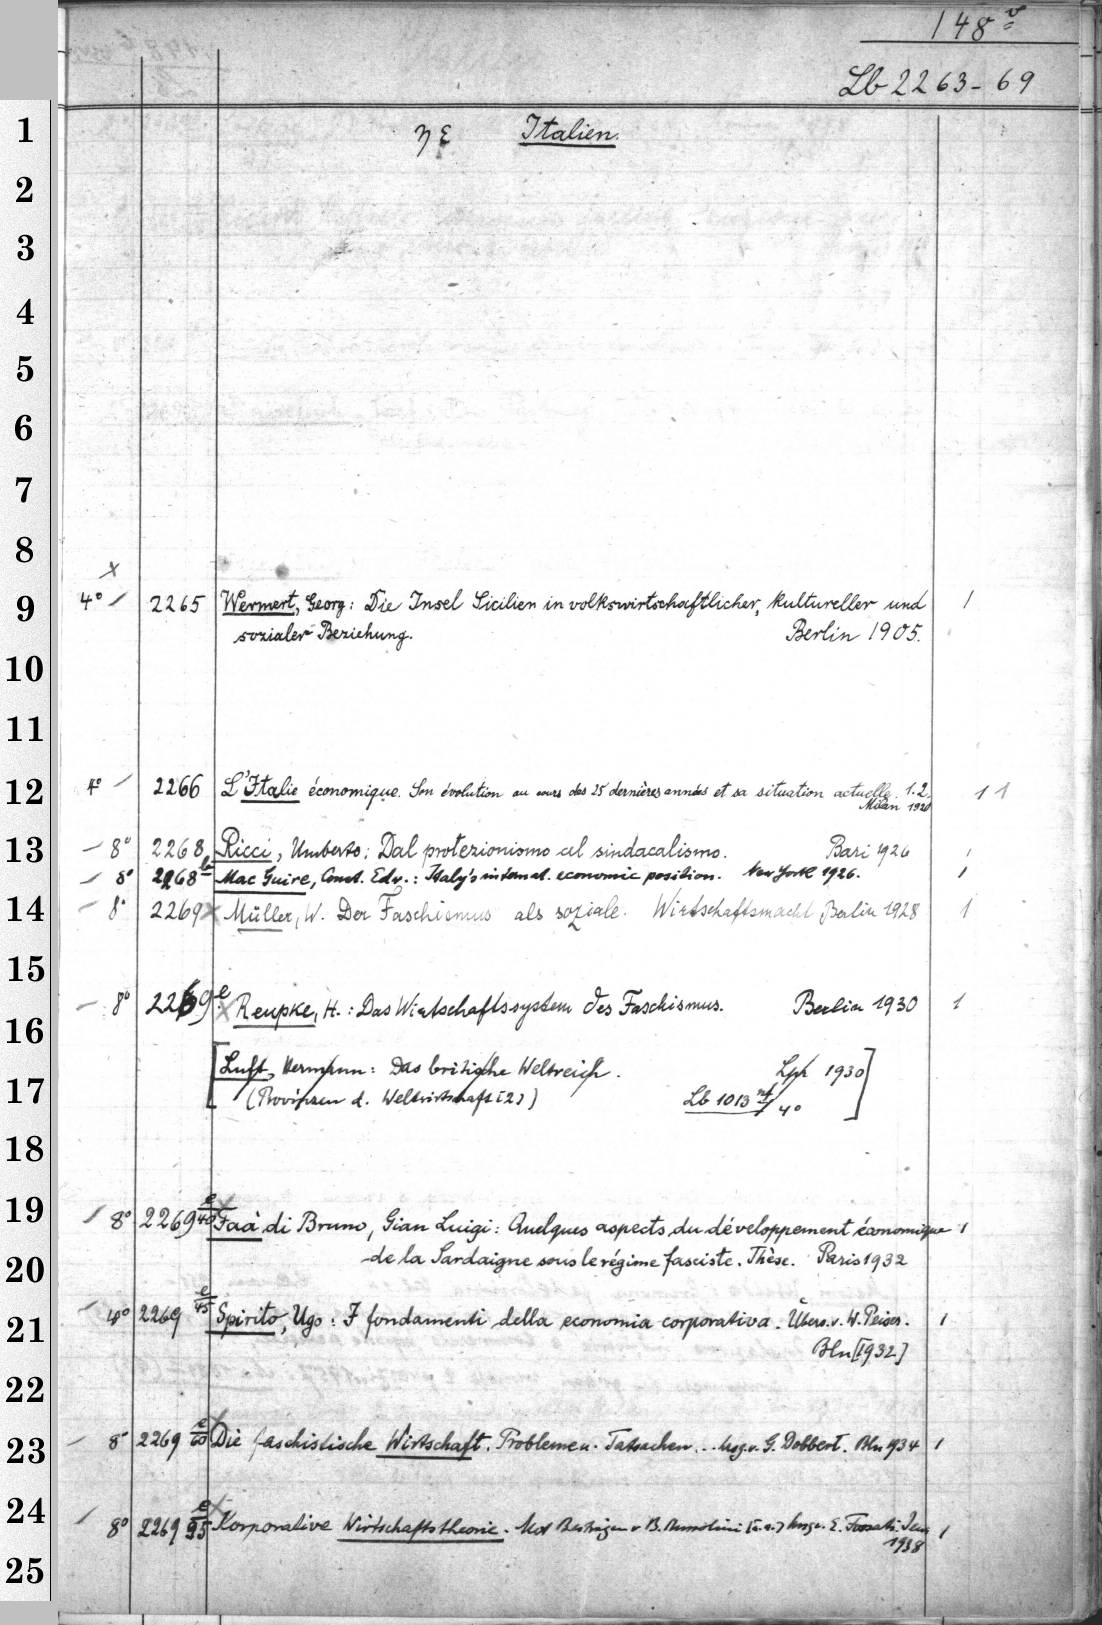 148 v
Lb 2263-69
Italien.
4° 2265 Wermert, Georg: Die Insel Sicilien in volkswirtschaftlicher, kultureller und 1
sozialer Beziehung. Berlin 1905.
4° 2266 L'Italie économique. Son évolution au cours des 25 dernières années et sa situation actuelle. 1.2. 1 1
Milan 1920
8° 2268 Ricci, Umberto: Dal protezionismo al sindacalismo. Bari 1926 1
8° 2268 b Mac Guire, Const. Edw.: Italy's internat. economic position. New York 1926. 1
8° 2269 Müller, W. Der Faschismus als soziale Wirtschaftsmacht Berlin 1928 1
8° 2269 e Reupke, H.: Das Wirtschaftssystem des Faschismus. Berlin 1930 1
[Luft, Hermann: Das britische Weltreich. Lpz 1930]
(Provinzen d. Weltwirtschaft [2]) Lb 1013 4°
8° 2269 e/40 Faà di Bruno, Gian Luigi: Quelques aspects du développement économique 1
de la Sardaigne sous le régime fasciste. Thèse. Paris 1932
4° 2269 e/45 Spirito, Ugo: I fondamenti della economia corporativa. Übers. v. W. Peiser. 1
Bln [1932]
8° 2269 e/60 Die faschistische Wirtschaft. Probleme u. Tatsachen... hrsg. v. G. Dobbert. Bln 1934 1
8° 2269 e/95 Korporative Wirtschaftstheorie. Mit Beiträgen v. B. Mussolini [u.a.] hrsg. v. E. Fossati. Jena 1
1938
1
2
3
4
5
6
7
8
9
10
11
12
13
14
15
16
17
18
19
20
21
22
23
24
25